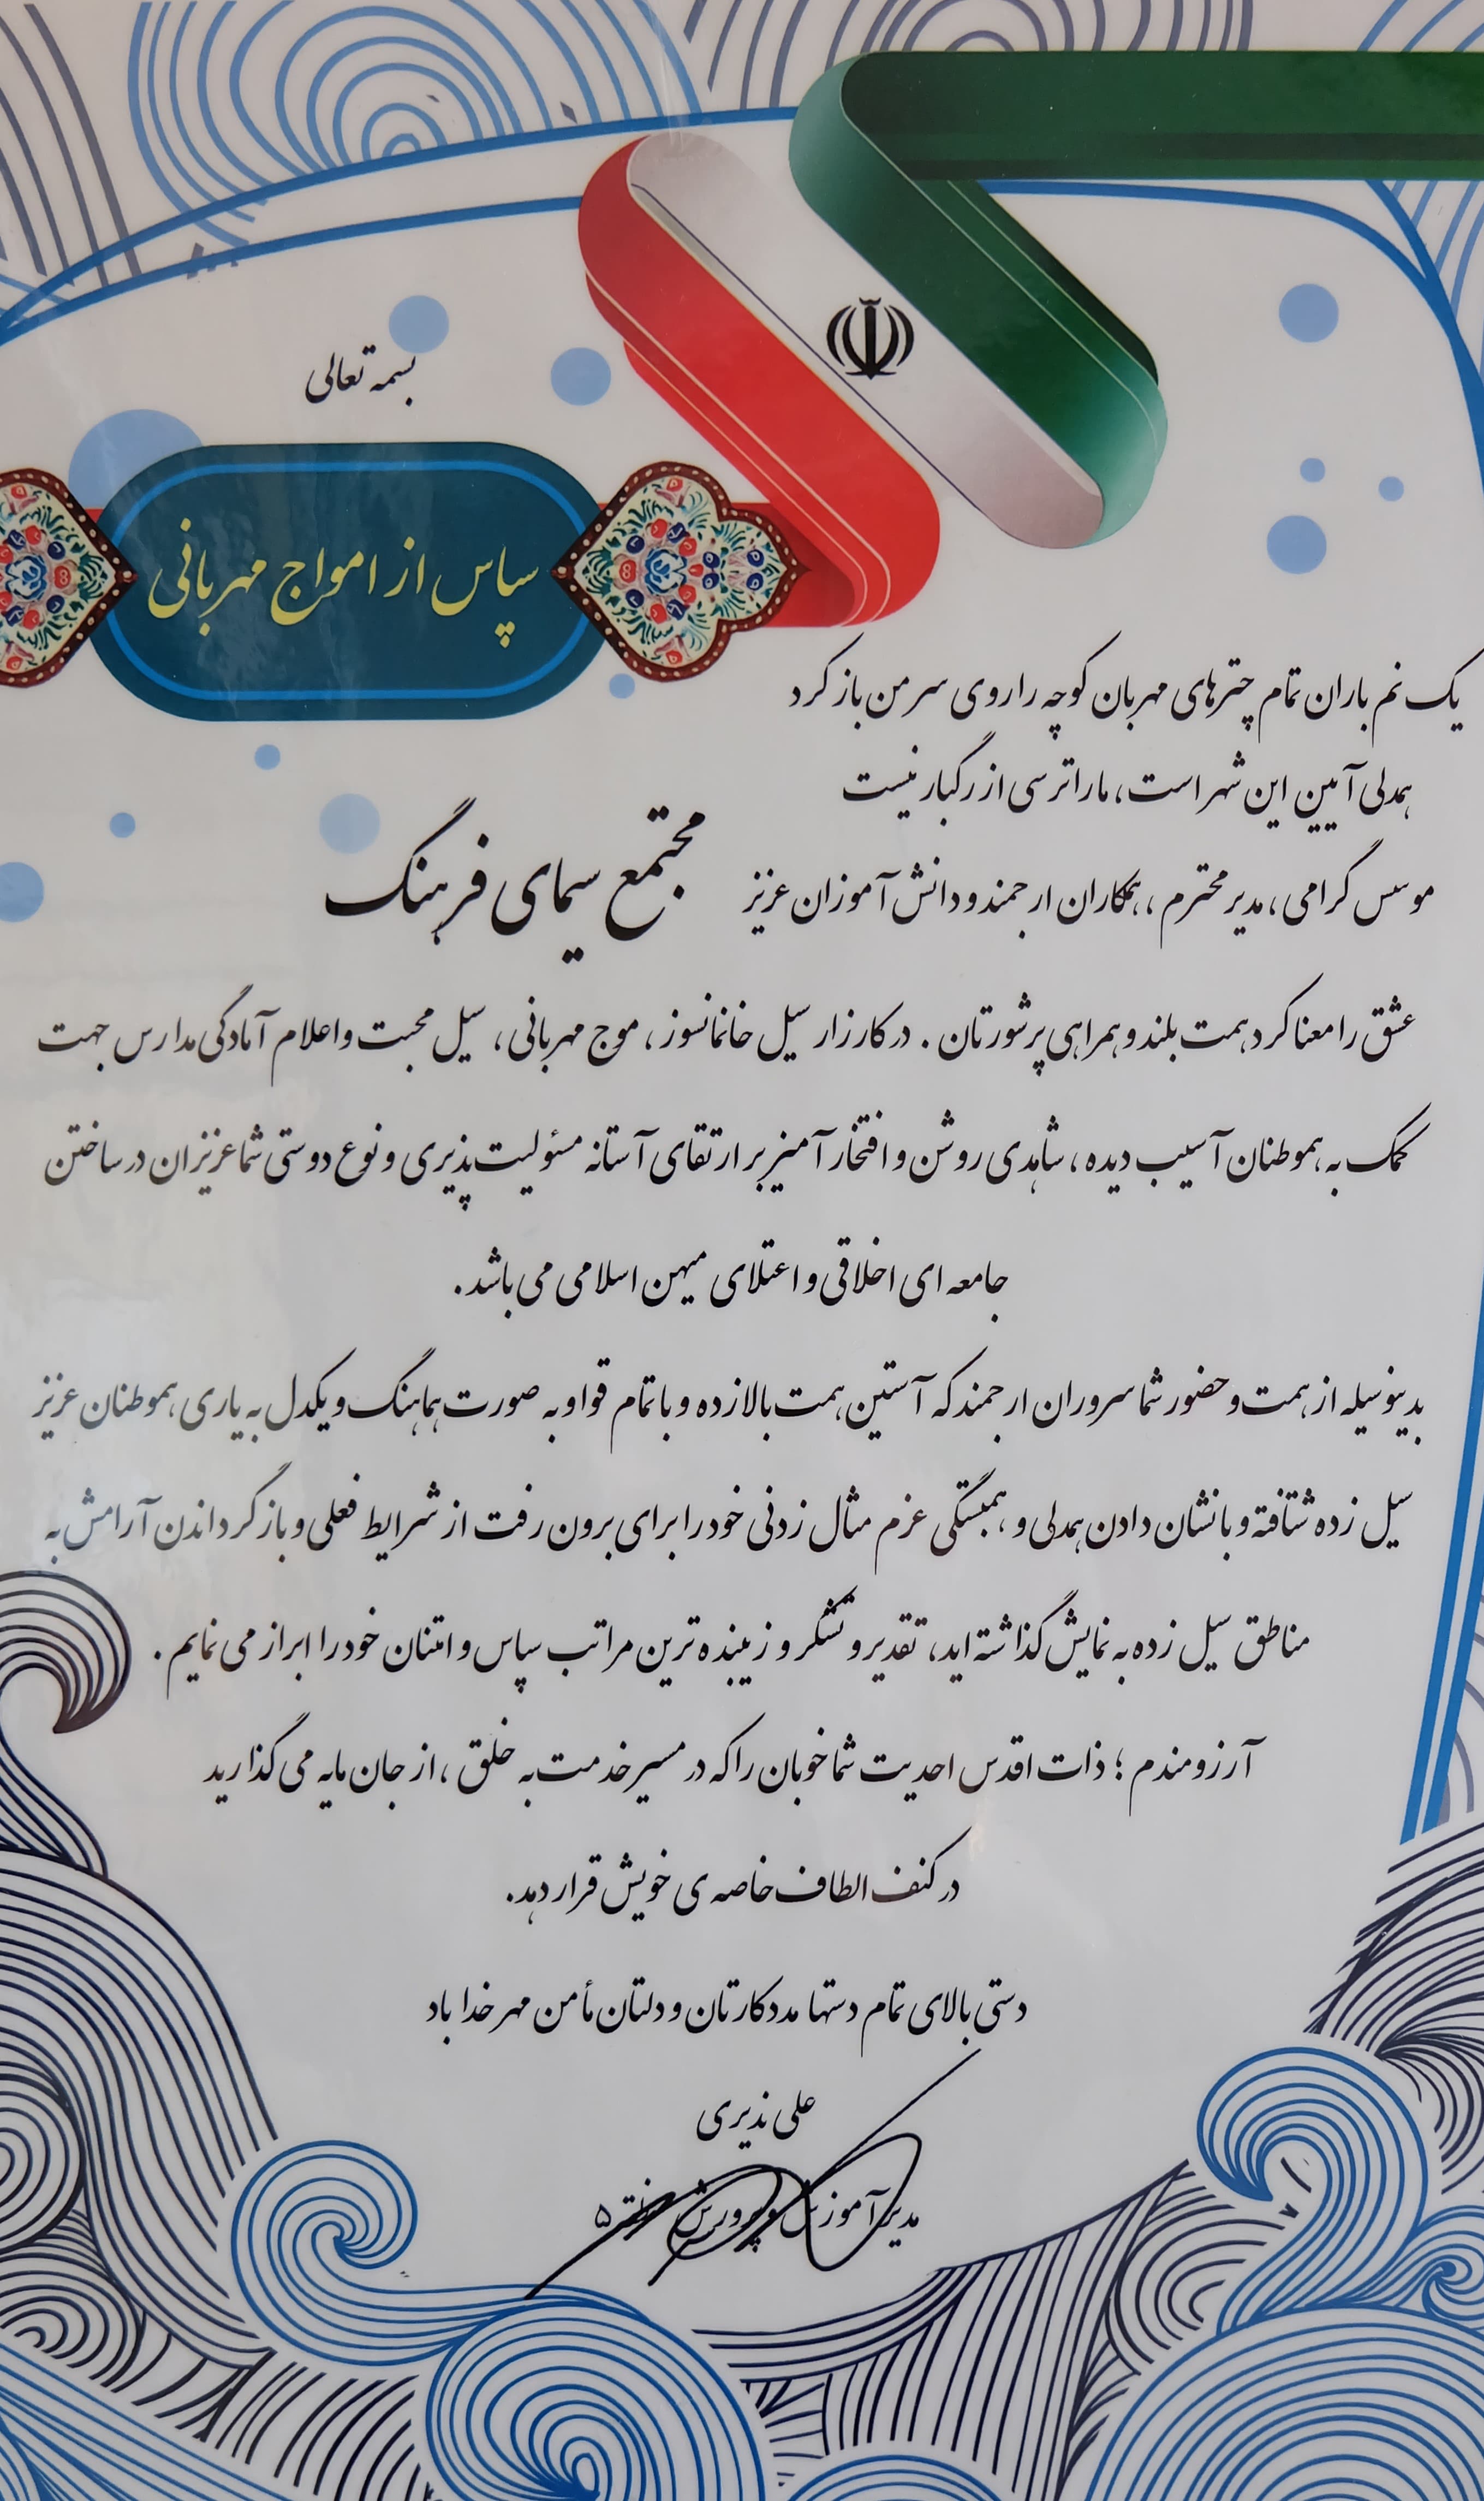 بسمه تعالی
سپاس از امواج مهربانی
یک نم باران تمام چترهای مهربان کوچه را روی سر من باز کرد
همدلی آیین این شهر است، ما را ترسی از رگبار نیست
موسس گرامی، مدیر محترم، همکاران ارجمند و دانش آموزان عزیز مجتمع سیمای فرهنگ
عشق را معنا کرد همت بلند و همراهی پرشورتان. در کارزار سیل خانمانسوز، موج مهربانی، سیل محبت و اعلام آمادگی مدارس جهت
کمک به هموطنان آسیب دیده، شاهدی روشن و افتخارآمیز بر ارتقای آستانه مسئولیت پذیری و نوع دوستی شما عزیزان در ساختن
جامعه ای اخلاقی و اعتلای میهن اسلامی می باشد.
بدینوسیله از همت و حضور شما سروران ارجمند که آستین همت بالا زده و با تمام قوا و به صورت هماهنگ و یکدل به یاری هموطنان عزیز
سیل زده شتافته و با نشان دادن همدلی و همبستگی عزم مثال زدنی خود را برای برون رفت از شرایط فعلی و بازگرداندن آرامش به
مناطق سیل زده به نمایش گذاشته اید، تقدیر و تشکر و زیبنده ترین مراتب سپاس و امتنان خود را ابراز می نمایم.
آرزومندم؛ ذات اقدس احدیت شما خوبان را که در مسیر خدمت به خلق، از جان مایه می گذارید
در کنف الطاف خاصه ی خویش قرار دهد.
دستی بالای تمام دستها مددکارتان و دلتان مأمن مهر خدا باد
علی نذیری
مدیر آموزش و پرورش منطقه ۵